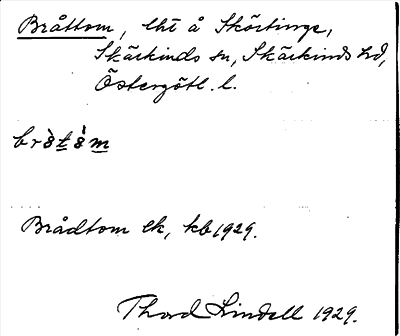 Bråttom, lht å Skörtinge,
Skärkinds sn, Skärkinds hd,
Östergötl. l.
Brådtom lk, kb 1929.
Thord Lindell 1929.